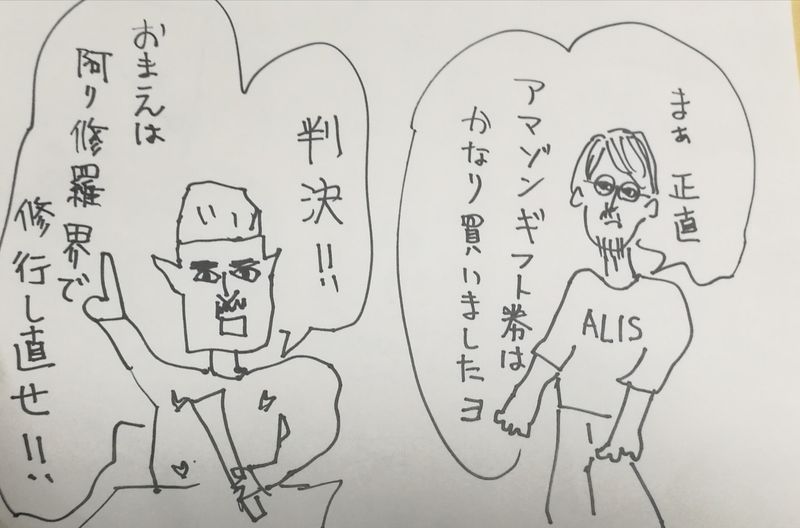 まぁ 正直
アマゾンギフト券は
かなり買いましたヨ
ALIS
判決!!
おまえは
阿修羅界で
修行し直せ!!